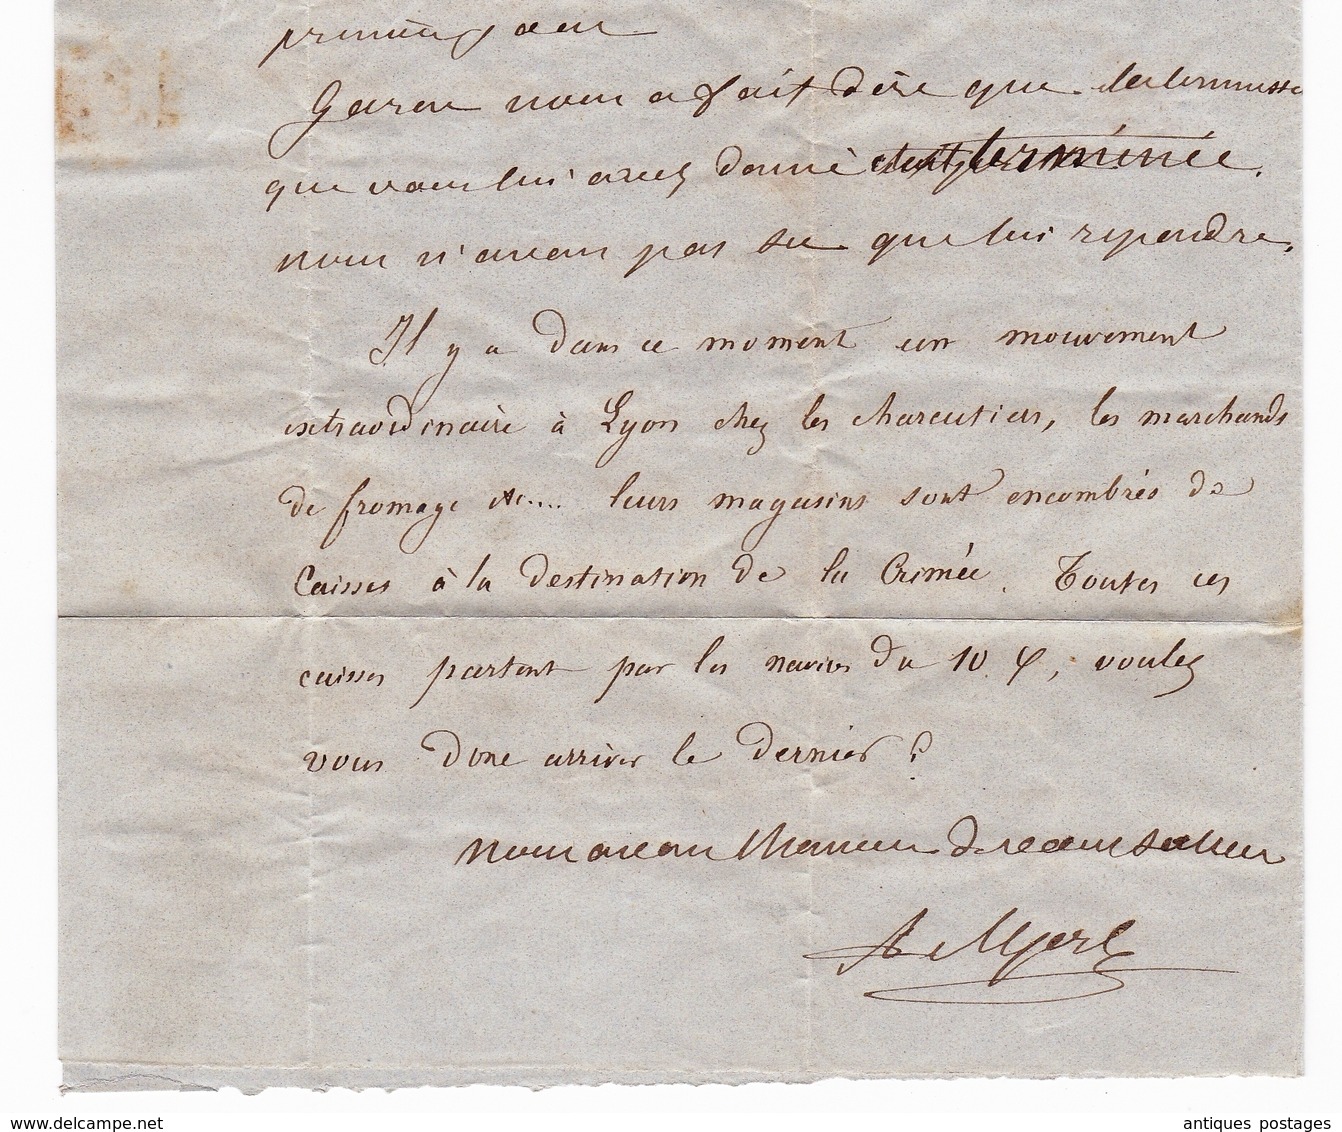 premiers jour
Garon nous a fait dire que
que vous lui avez donné était terminée.
nous n'avons pas su que lui repondre.
Il y a dans ce moment un mouvement
extraordinaire à Lyon chez les charcutiers, les marchands
de fromage etc.... leurs magasins sont encombrés de
Caisses à la destination de la Crimée. Toutes ces
caisses partent par les navires du 10. , voulez
vous donc arriver le dernier?
nous avons Monsieur de vous saluer
www.delcampe.net
antiques postages